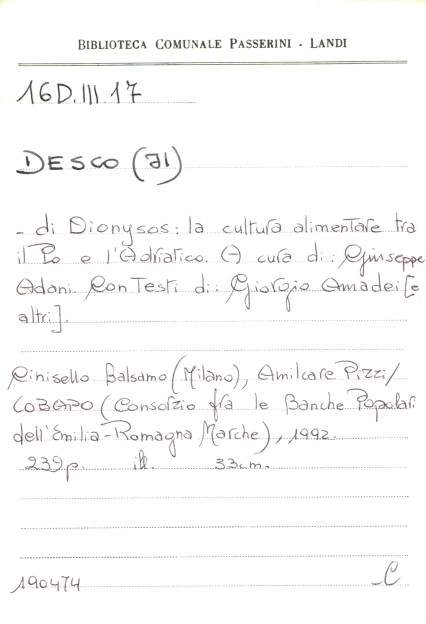 BIBLIOTECA COMUNALE PASSERINI - LANDI
16D.III.17
DESCO (Il)
- di Dionysos: la cultura alimentare tra
il Po e l'Adriatico. A cura di: Giuseppe
Adani. Con Testi di: Giorgio Amadei [e
altri].
Cinisello Balsamo (Milano), Amilcare Pizzi/
COBAPO (Consorzio fra le Banche Popolari
dell'Emilia-Romagna Marche), 1992.
239p. ill. 33cm.
190474 C